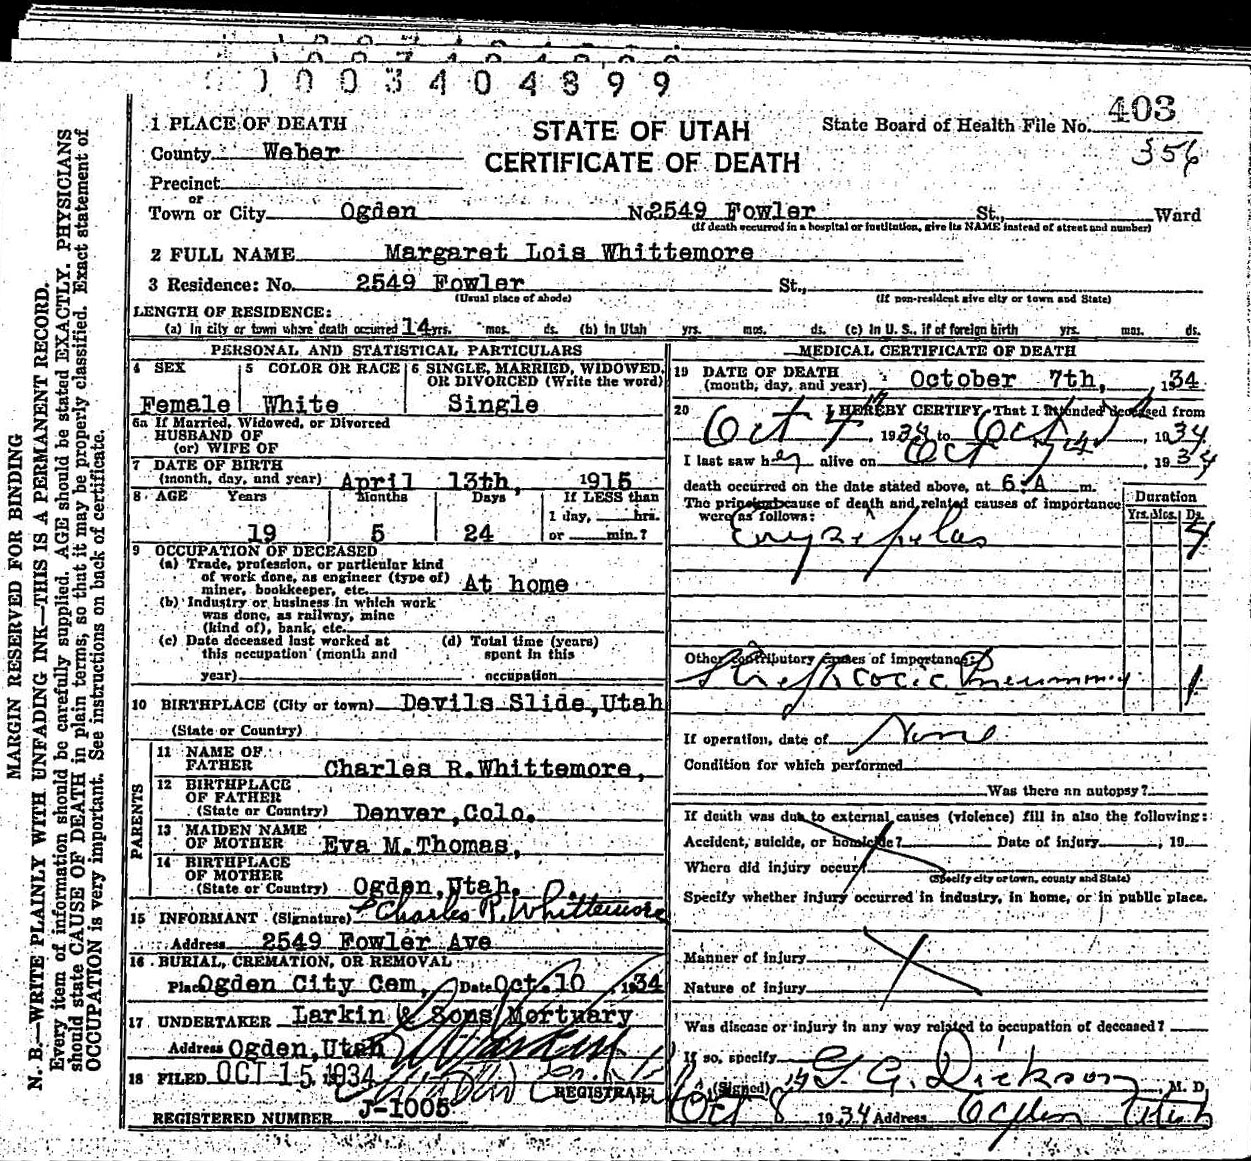 0003404899
403
356
1 PLACE OF DEATH
STATE OF UTAH
CERTIFICATE OF DEATH
State Board of Health File No.
County Weber
Precinct
or
Town or City Ogden No. 2549 Fowler St., Ward
(If death occurred in a hospital or institution, give its NAME instead of street and number)
2 FULL NAME Margaret Lois Whittemore
3 Residence: No. 2549 Fowler St.,
(Usual place of abode) (If non-resident give city or town and State)
LENGTH OF RESIDENCE:
(a) In city or town where death occurred 14 yrs. mos. ds. (b) In Utah yrs. mos. ds. (c) In U. S., if of foreign birth yrs. mos. ds.
PERSONAL AND STATISTICAL PARTICULARS
4 SEX 5 COLOR OR RACE 6 SINGLE, MARRIED, WIDOWED, OR DIVORCED (Write the word)
Female White Single
6a If Married, Widowed, or Divorced
HUSBAND OF
(or) WIFE OF
7 DATE OF BIRTH
(month, day, and year) April 13th, 1915
8 AGE Years Months Days If LESS than
1 day, hrs.
19 5 24 or min.?
9 OCCUPATION OF DECEASED
(a) Trade, profession, or particular kind
of work done, as engineer (type of)
miner, bookkeeper, etc. At home
(b) Industry or business in which work
was done, as railway, mine
(kind of), bank, etc.
(c) Date deceased last worked at (d) Total time (years)
this occupation (month and spent in this
year) occupation
10 BIRTHPLACE (City or town) Devils Slide, Utah
(State or Country)
PARENTS
11 NAME OF
FATHER Charles R. Whittemore,
12 BIRTHPLACE
OF FATHER
(State or Country) Denver, Colo.
13 MAIDEN NAME
OF MOTHER Eva M. Thomas,
14 BIRTHPLACE
OF MOTHER
(State or Country) Ogden, Utah.
15 INFORMANT (Signature) Charles R. Whittemore
Address 2549 Fowler Ave
16 BURIAL, CREMATION, OR REMOVAL
Place Ogden City Cem, Date Oct. 10, 1934
17 UNDERTAKER Larkin & Sons Mortuary
Address Ogden, Utah
18 FILED OCT 15 1934
REGISTRAR
REGISTERED NUMBER J-1005
MEDICAL CERTIFICATE OF DEATH
19 DATE OF DEATH
(month, day, and year) October 7th, 1934
20 I HEREBY CERTIFY, That I attended deceased from
Oct 4th, 1934 to Oct 7, 1934
I last saw her alive on Oct 7th, 1934
death occurred on the date stated above, at 6. A m.
The principal cause of death and related causes of importance
were as follows:
Duration
Yrs. Mos. Ds.
Erysipelas 4
Other contributory causes of importance:
Streptococic Pneumonia 1
If operation, date of None
Condition for which performed
Was there an autopsy?
If death was due to external causes (violence) fill in also the following:
Accident, suicide, or homicide? Date of injury, 19
Where did injury occur?
(Specify city or town, county and State)
Specify whether injury occurred in industry, in home, or in public place.
Manner of injury
Nature of injury
Was disease or injury in any way related to occupation of deceased?
If so, specify
(Signed) G. Dickson, M. D.
Oct 8 1934 Address Ogden Utah
MARGIN RESERVED FOR BINDING
N. B.—WRITE PLAINLY WITH UNFADING INK—THIS IS A PERMANENT RECORD.
Every item of information should be carefully supplied. AGE should be stated EXACTLY. PHYSICIANS
should state CAUSE OF DEATH in plain terms, so that it may be properly classified. Exact statement of
OCCUPATION is very important. See instructions on back of certificate.